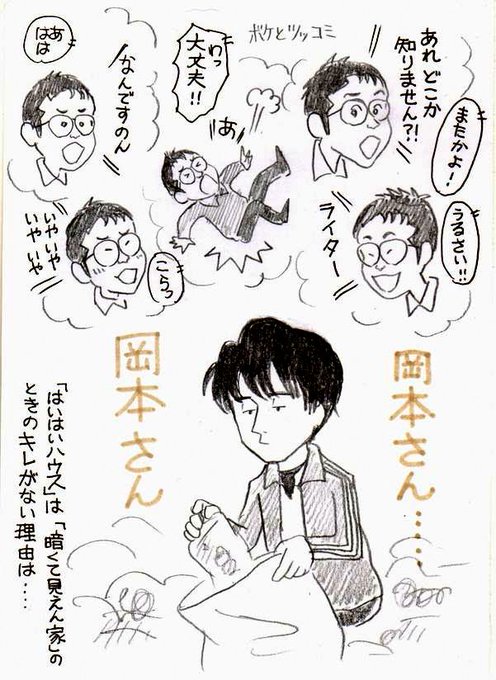 ボケとツッコミ
あれどこか
知りません?!
またかよ!
わっ
大丈夫!!
あ
なんですのん
あは
はは
うるさい!!
ライター
こらっ
いやいや
いやいや
いや いや
岡本さん……
岡本さん
「はいはいハウス」は「暗くて見えん家」の
ときのキレがない理由は….